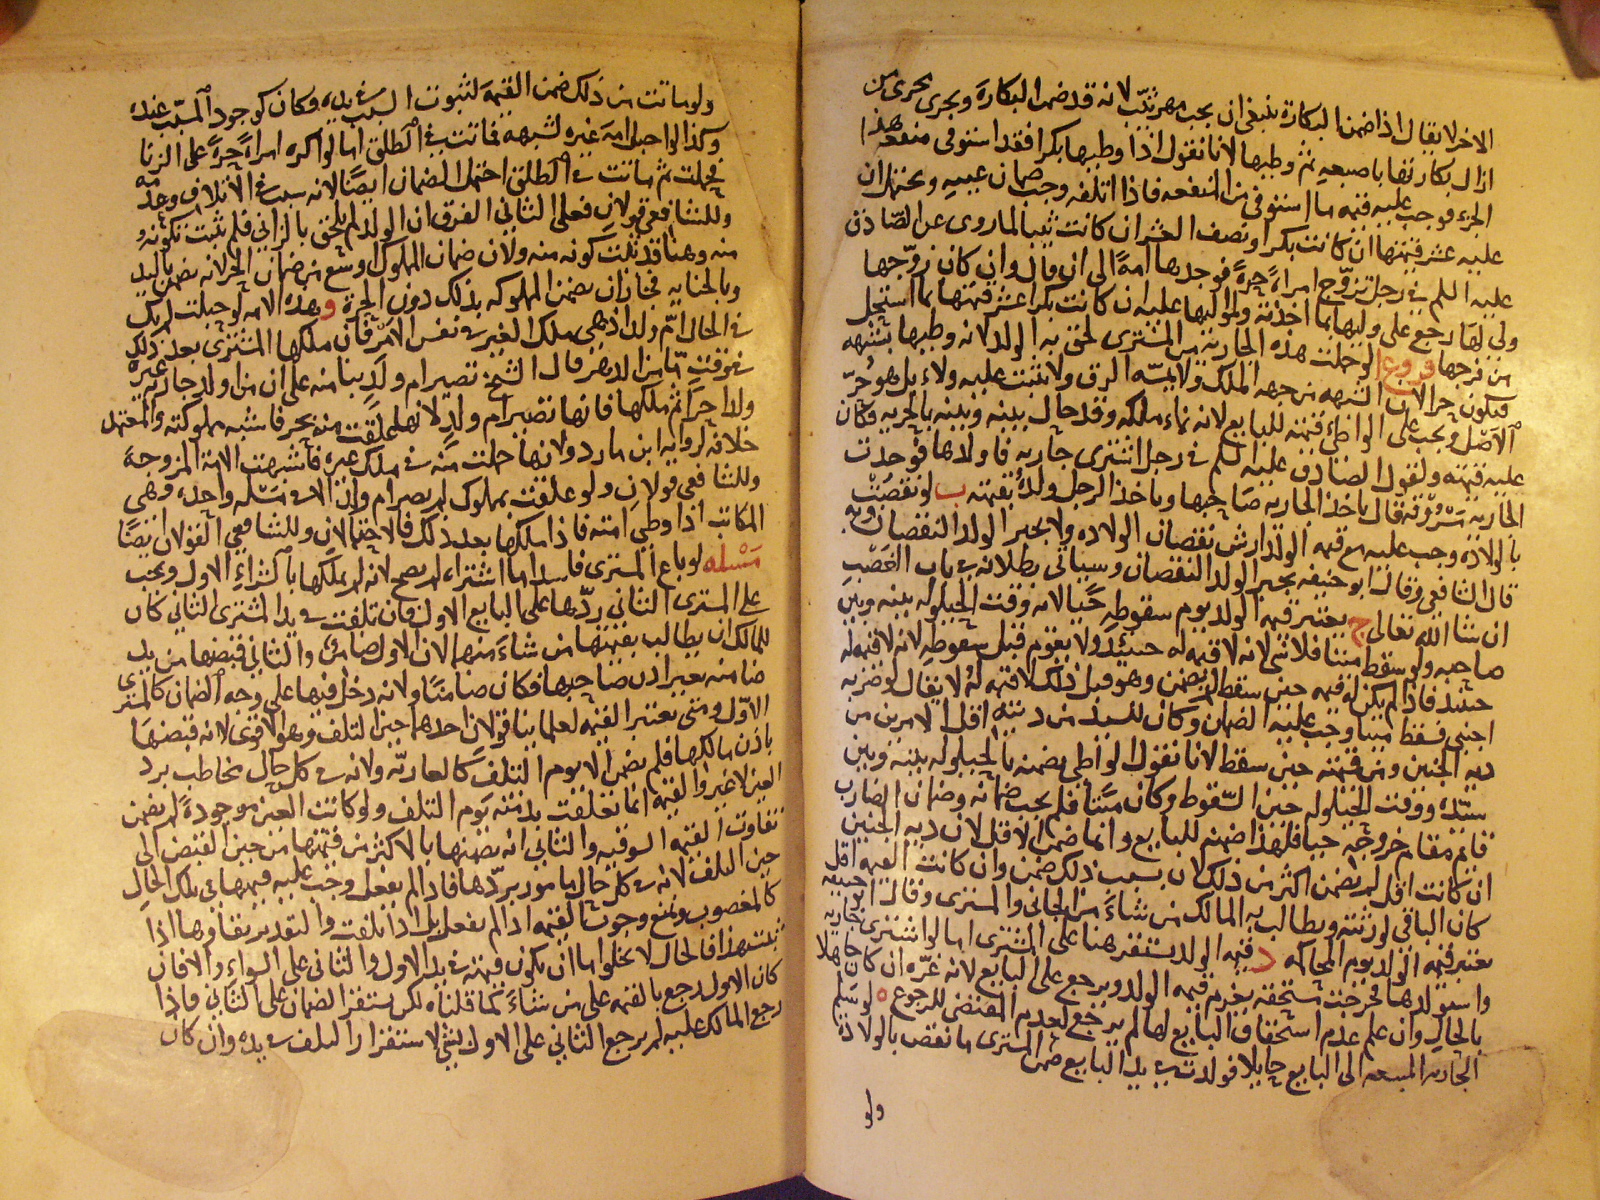 الاخر لا يقال اذا ضمن البكارة ينبغي ان يجب مهر ثيب لانه قد ضمن البكارة ويجرى مجرى من
ازال بكارتها باصبعه ثم وطيها لانا نقول اذا وطيها بكرا فقد استوفى منفعة هذا
الجزء فوجب عليه قيمة ما استوفى من المنفعة فاذا اتلفه وجب ضمان عينه ويحتمل ان
عليه عشر قيمتها ان كانت بكرا ونصف العشر ان كانت ثيبا لما روى عن الصادق
عليه السلم في رجل تزوج امراة حرة فوجدها امة الى ان قال وان كان زوجها
ولي لها رجع على وليها بما اخذته ولمواليها عليه ان كانت بكرا عشر قيمتها بما استحل
من فرجها فروع ا لو حملت هذه الجارية من المشترى لحق به الولد لانه وطيها بشبهة
فيكون حرا لان الشبهة من جهة الملك ولا يمسه الرق ولا يثبت عليه ولاء بل هو حر
الاصل ويجب على الواطى قيمته للبايع لانه نماء ملكه وقد حال بينه وبينه بالحرية فكان
عليه قيمته ولقول الصادق عليه السلم في رجل اشترى جارية فاولدها فوجدت
الجارية مسروقة قال ياخذ الجارية صاحبها وياخذ الرجل ولده بقيمته ب لو نقصت
بالولادة وجب عليه مع قيمة الولد ارش نقصان الولادة ولا يجبر الولد النقصان وبه
قال الشافعي وقال ابو حنيفة يجبر الولد النقصان وسياتي بطلانه في باب الغصب
ان شا الله تعالى ج يعتبر قيمة الولد يوم سقوطه حيا لانه وقت الحيلولة بينه وبين
صاحبه ولو سقط ميتا فلا شى لانه لا قيمة له حينئذ ولا يقوم قبل سقوطه لانه لا قيمة له
حينئذ فاذا لم يكن له قيمة حين سقط لم يضمن وهو قبل ذلك لا قيمة له لا يقال لو ضربه
اجنبي فسقط ميتا وجب عليه الضمان وكان للسيد من ديته اقل الامرين من
دية الجنين ومن قيمته حين سقط لانا نقول الواطى يضمنه بالحيلولة بينه وبين
سيده ووقت الحيلولة حين السقوط وكان ميتا فلم يجب ضمانه وضمان الضارب
قايم مقام خروجه حيا فلهذا ضمنه للبايع وانما ضمن الاقل لان دية الجنين
ان كانت اقل لم يضمن اكثر من ذلك لان بسبب ذلك ضمن وان كانت القيمة اقل
كان الباقي لورثته ويطالب به المالك من شاء من الجاني والمسترى وقال ابو حنيفة
يعتبر قيمة الولد يوم المحاكمة د قيمة الولد يستقر هنا على المشترى اما لو اشترى جارية
واستولدها فخرجت مستحقة يغرم قيمة الولد ويرجع على البايع لانه غره ان كان جاهلا
بالحال وان علم عدم استحقاق البايع لها لم يرجع لعدم المقتضى للرجوع ه لو سلم
الجارية المبيعة الى البايع حاملا فولدت في يد البايع ضمن المشترى ما نقص بالولادة
ولو
ولو ماتت من ذلك ضمن القيمة لثبوت السبب في يده وكان كوجود المسبب عنده
وكذا لو احبل امة غيره لشبهة فماتت في الطلق اما لو اكره امراة حرة على الزنا
فحملت ثم ماتت في الطلق احتمل الضمان ايضا لانه سبب في الاتلاف وعدمه
وللشافعي قولان فعلى الثاني الفرق ان الولد لم يلحق بالزاني فلم يثبت تكونه
منه وهنا قد ثبت كونه منه ولان ضمان المملوك اوسع من ضمان الحر لانه يضمن باليد
وبالجناية فجاز ان يضمن المملوكة بذلك دون الحرة و وهذه الامة لو حبلت لم يك
في الحال ام ولد اذ هي ملك الغير في نفس الامر فان ملكها المشترى بعد ذلك
في وقت ما من الدهر قال الشيخ تصير ام ولد بنا منه على ان من اولد جارية غيره
ولدا حرا ثم ملكها فانها تصير ام ولد لانها علقت منه بحر فاشبه مملوكته والمعتمد
خلافه لرواية ابن مارد ولانها حملت منه في ملك غيره فاشبهت الامة المزوجة
وللشافعي قولان ولو علقت بمملوك لم يصر ام ولد الا في مسئلة واحدة وهي
المكاتب اذا وطي امته فاذا ملكها بعد ذلك فالاحتمالان وللشافعي القولان ايضا
مسئلة لو باع المسترى فاسدا ما اشتراه لم يصح لانه لم يملكها بالشراء الاول ويجب
على المسترى الثاني ردها على البايع الاول فان تلفت في يد المشترى الثاني كان
للمالك ان يطالب بقيمتها من شاء منهما لان الاول ضامن والثاني قبضها من يد
ضامنه بغير اذن صاحبها فكان ضامنا ولانه دخل فيها على وجه الضمان كالمشترى
الاول ومتى يعتبر القيمة لعلمائنا قولان احدهما حين التلف وهو الاقوى لانه قبضها
باذن مالكها فلم يضمن الا يوم التلف كالعارية ولانه في كل حال مخاطب برد
العين لا غير والقيمة انما تعلقت بذمته يوم التلف ولو كانت العين موجودة لم يضمن
تفاوت القيمة السوقية والثاني انه يضمنها بالاكثر من قيمتها من حين القبض الى
حين التلف لانه في كل حال مامور بردها فاذا لم يفعل وجب عليه قيمتها في تلك الحال
كالمغصوب ونمنع وجوب القيمة اذا لم يفعل بل اذا تلفت والتقدير بقاؤها اذا
ثبت هذا فالحال لا يخلوا اما ان يكون قيمته في يد الاول والثاني على السواء والا فان
كان الاول رجع بالقيمة على من شاء كما قلناه لكن يستقر الضمان على الثاني فاذا
رجع المالك عليه لم يرجع الثاني على الاول بشى لاستقرار التلف في يده وان كان